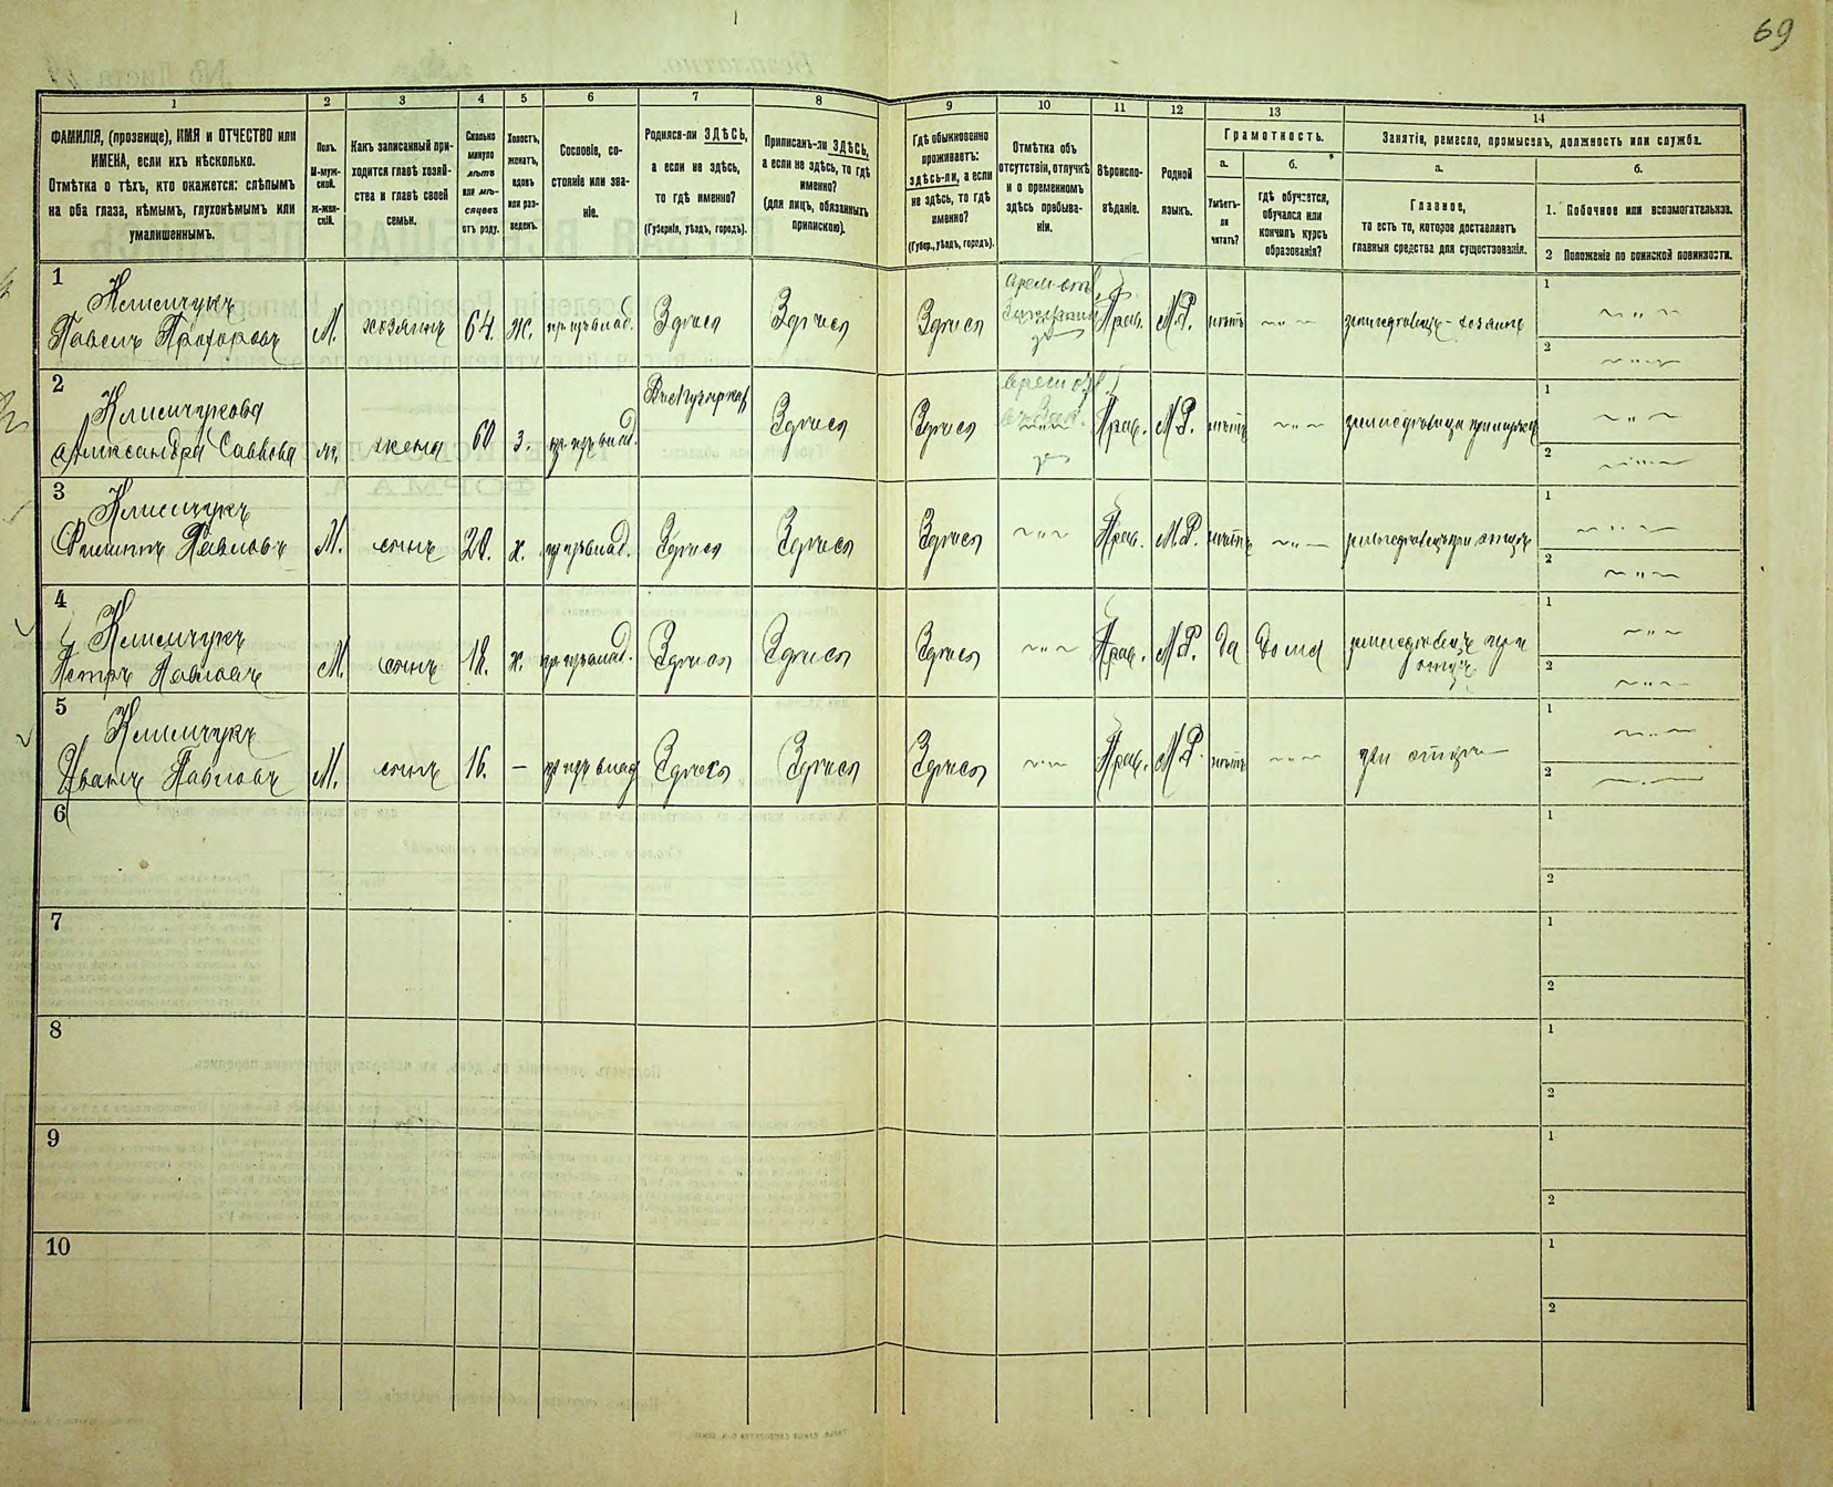 69
1
2
3
4
5
6
7
8
9
10
11
12
13
14
ФАМИЛІЯ, (прозвище), ИМЯ и ОТЧЕСТВО или
ИМЕНА, если ихъ нѣсколько.
Отмѣтка о тѣхъ, кто окажется: слѣпымъ
на оба глаза, нѣмымъ, глухонѣмымъ или
умалишеннымъ.
Полъ.
М-муж-
ской.
Ж-жен-
скій.
Какъ записанный при-
ходится главѣ хозяй-
ства и главѣ своей
семьи.
Сколько
минуло
лѣтъ
или мѣ-
сяцевъ
отъ роду.
Холостъ,
женатъ,
вдовъ
или раз-
веденъ.
Сословіе, со-
стояніе или зва-
ніе.
Родился-ли ЗДѢСЬ,
а если не здѣсь,
то гдѣ именно?
(Губернія, уѣздъ, городъ).
Приписанъ-ли ЗДѢСЬ,
а если не здѣсь, то гдѣ
именно?
(для лицъ, обязанныхъ
припискою).
Гдѣ обыкновенно
проживаетъ:
здѣсь-ли, а если
не здѣсь, то гдѣ
именно?
(Губер., уѣздъ, городъ).
Отмѣтка объ
отсутствіи, отлучкѣ
и о временномъ
здѣсь пребыва-
ніи.
Вѣроиспо-
вѣданіе.
Родной
языкъ.
Грамотность.
а.
б.
Умѣетъ-
ли
читать?
гдѣ обучается,
обучался или
кончилъ курсъ
образованія?
Занятіе, ремесло, промыселъ, должность или служба.
а.
б.
Главное,
то есть то, которое доставляетъ
главныя средства для существованія.
1. Побочное или вспомогательное.
2 Положеніе по воинской повинности.
1
Климчукъ
Павелъ Прохоровъ
М.
хозяинъ
64.
ж.
Здѣсь
Здѣсь
Здѣсь
Прав.
М.Р.
нѣтъ
земледѣлецъ - хозяинъ
1
2
2
Климчукова
Александра Саввова
ж.
жена
60
з.
Здѣсь
Здѣсь
Прав.
М.Р.
нѣтъ
1
2
3
Климчукъ
Филиппъ Павловъ
М.
сынъ
20.
х.
Здѣсь
Здѣсь
Здѣсь
Прав.
М.Р.
нѣтъ
земледѣлецъ при отцѣ
1
2
4
Климчукъ
Петръ Павловъ
М.
сынъ
18.
х.
Здѣсь
Здѣсь
Здѣсь
Прав.
М.Р.
да
дома
земледѣлецъ при
отцѣ
1
2
5
Климчукъ
Иванъ Павловъ
М.
сынъ
16.
—
Здѣсь
Здѣсь
Здѣсь
Прав.
М.Р.
нѣтъ
при отцѣ
1
2
6
1
2
7
1
2
8
1
2
9
1
2
10
1
2